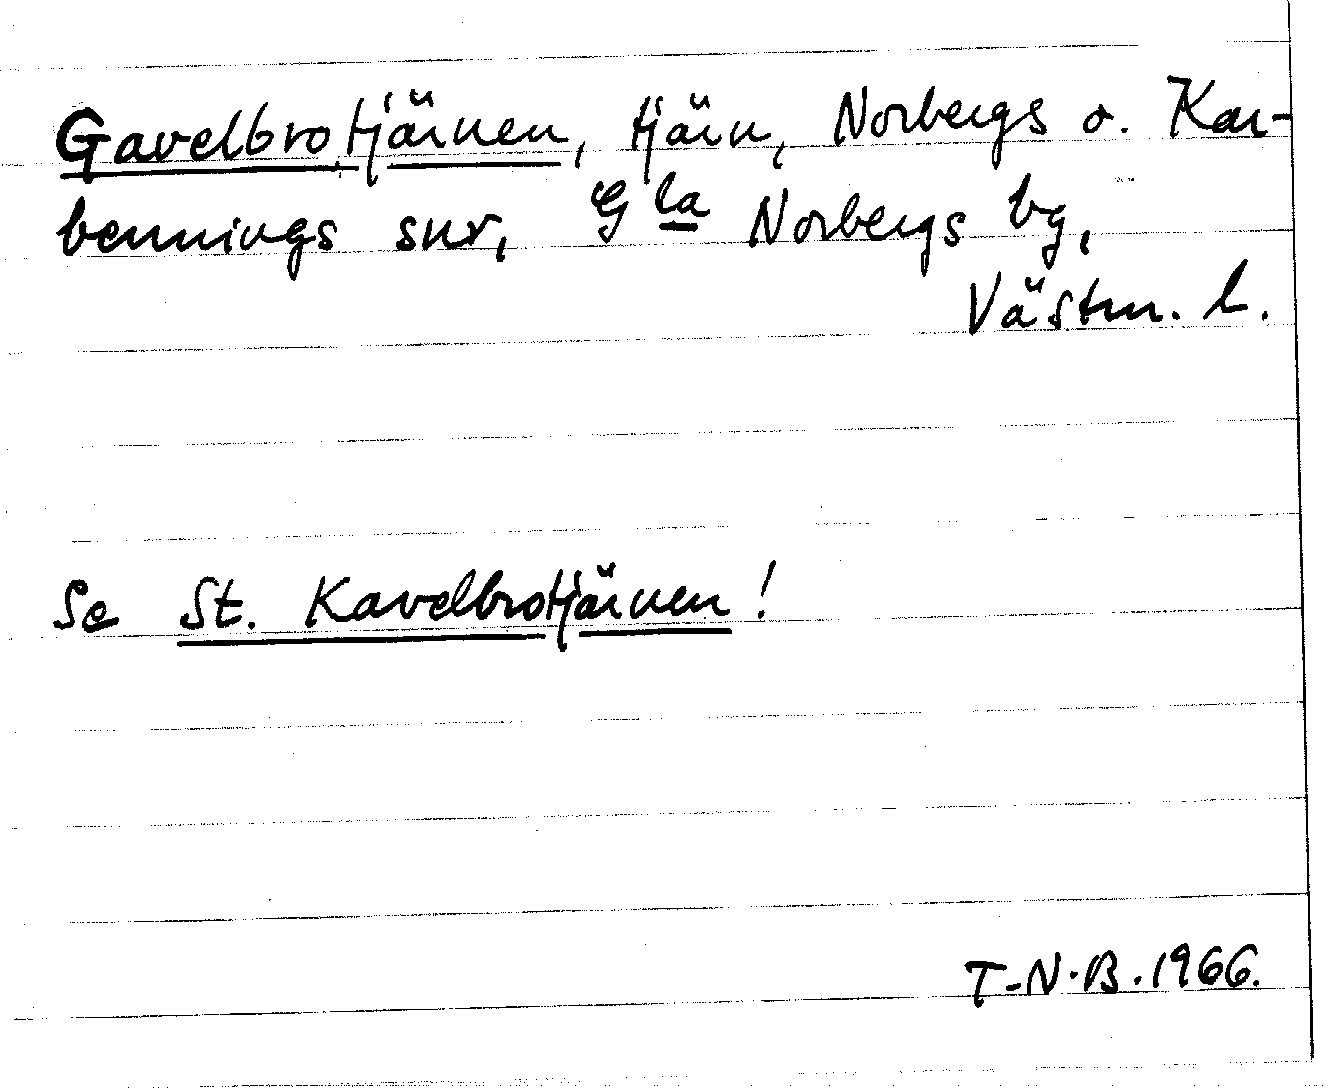 Gavelbrotjärnen, tjärn, Norbergs o. Kar-
bennings snr, Gla Norbergs bg,
Västm. l.
Se St. Kavelbrotjärnen!
T-N.B. 1966.